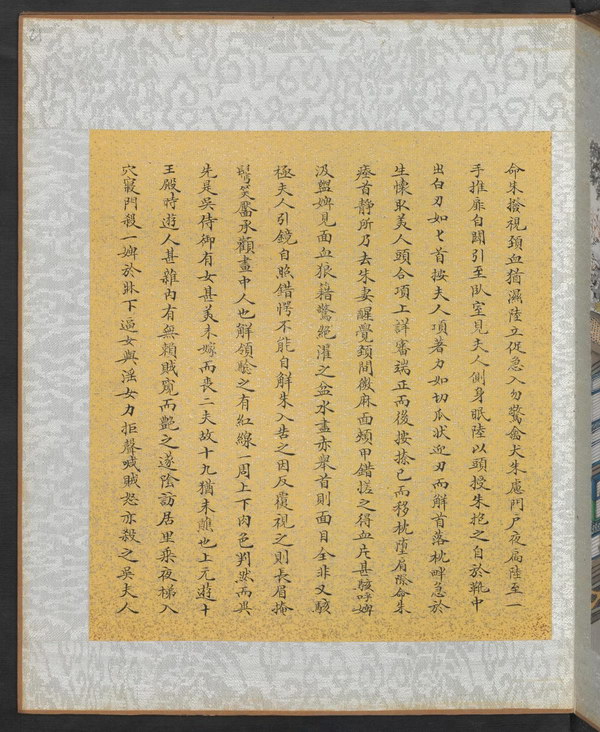 命朱撥視頸血猶濕陸立促急入勿驚禽犬朱慮門戶夜扃陸至一
手推扉自闢引至臥室見夫人側身眠陸以頭授朱抱之自於靴中
出白刃如匕首按夫人項著力如切瓜狀迎刃而解首落枕畔急於
生懷取美人頭合項上詳審端正而後按捺已而移枕墮肩際命朱
瘞首靜所乃去朱妻醒覺頸間微麻面頰甲錯搓之得血片甚駭呼婢
汲盥婢見面血狼籍驚絕濯之盆水盡赤舉首則面目全非又駭
極夫人引鏡自照錯愕不能自解朱入告之因反覆視之則長眉掩
鬢笑靨承顴畫中人也解領驗之有紅線一周上下肉色判然而異
先是吳侍御有女甚美未嫁而喪二夫故十九猶未醮也上元遊十
王殿時遊人甚雜內有無賴賊窺而艷之遂陰訪居里乘夜梯入
穴寢門殺一婢於牀下逼女與淫女力拒聲喊賊怒亦殺之吳夫人